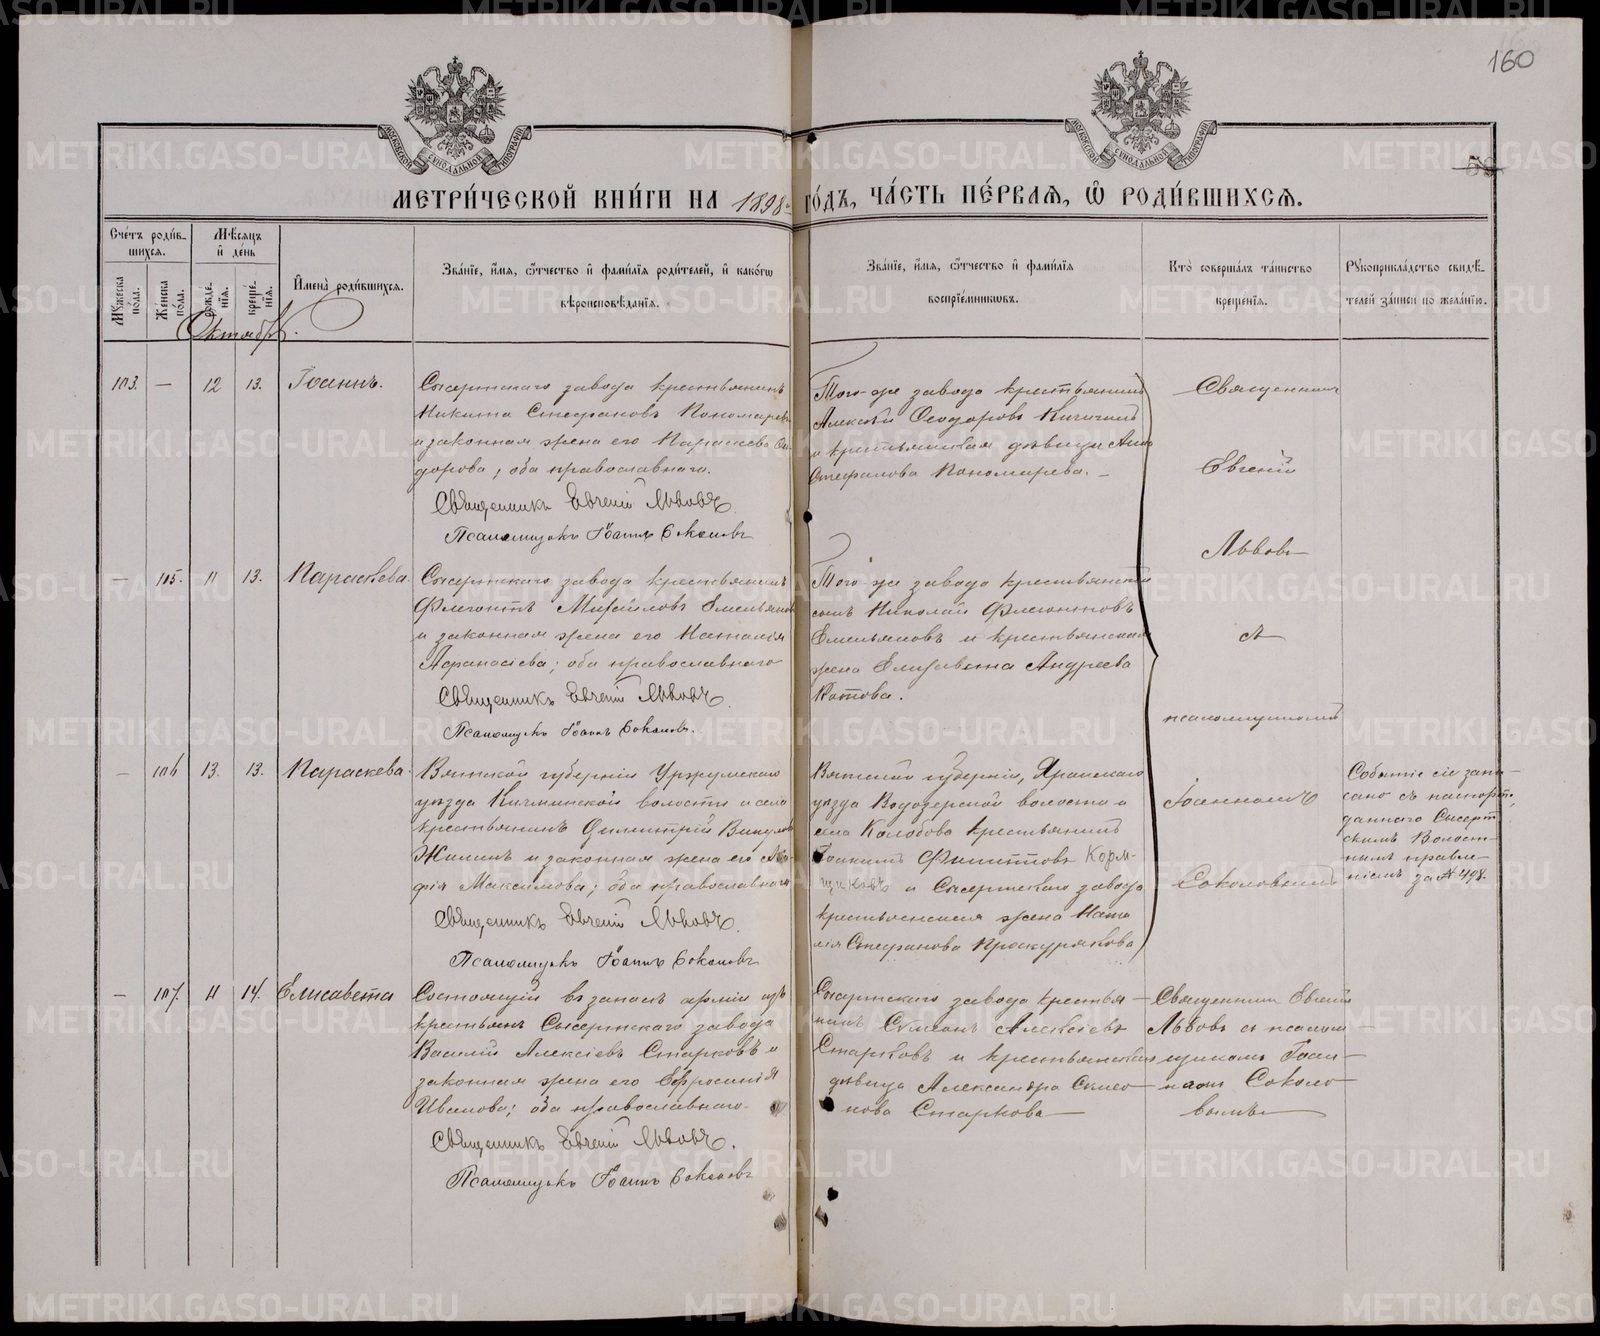 160
59
МЕТРИ́ЧЕСКОЙ КНИ́ГИ НА 1898 ГО́ДЪ, ЧА́СТЬ ПЕ́РВАЯ, Ѽ РОДИ́ВШИХСЯ.
Сче́тъ роди́в-
шихся.
Му́жеска по́ла.
Же́нска по́ла.
Мѣ́сяцъ и де́нь
рожде́нія.
креще́нія.
Имена̀ роди́вшихся.
Зва́ніе, и́мя, ѻ́тчество и фами́лія роди́телей, и како́гѡ
вѣроисповѣ́данія.
Зва́ніе, и́мя, ѻ́тчество и фами́лія
воспріе́мниковъ.
Кто̀ соверша́лъ та́инство
креще́нія.
Рукоприкла́дство свидѣ́-
телей за́писи по жела́нію.
Октябрь.
103. — 12 13. Іоаннъ.
Сысертскаго завода крестьянинъ
Никита Стефановъ Пономаревъ
и законная жена его Параскева Си-
дорова; оба православнаго.
Священникъ Евгеній Львовъ.
Псаломщикъ Іоаннъ Соколовъ
Того-же завода крестьянинъ
Алексѣй Ѳеодоровъ Кичигинъ
и крестьянская дѣвица Анна
Стефанова Пономарева. —
— 105. 11 13. Параскева.
Сысертскаго завода крестьянинъ
Флегонтъ Михайловъ Емельяновъ
и законная жена его Наталія
Аѳанасіева; оба православнаго
Священникъ Евгеній Львовъ.
Псаломщикъ Іоаннъ Соколовъ.
Того-же завода крестьянскій
сынъ Николай Флегонтовъ
Емельяновъ и крестьянская
жена Елизавета Андреева
Котова.
— 106 13. 13. Параскева.
Вятской губерніи Уржумскаго
уѣзда Кичминской волости и села
крестьянинъ Димитрій Викуловъ
Жилинъ и законная жена его
Максимова; оба православнаго
Священникъ Евгеній Львовъ.
Псаломщикъ Іоаннъ Соколовъ
Вятской губерніи, Яранскаго
уѣзда Водозерской волости и
села Колобова крестьянинъ
Іоакимъ Филипповъ Корм-
щиковъ и Сысертскаго завода
крестьянская жена Ната
лія Стефанова Проскурякова
Священникъ
Евгеній
Львовъ
съ
псаломщикомъ
Іоанномъ
Соколовымъ
Событіе сіе запи-
сано съ паспорта,
даннаго Сысерт-
скимъ Волост-
нымъ правле-
ніемъ за № 498.
— 107. 11 14. Елисавета
Состоящій въ запасѣ арміи изъ
крестьянъ Сысертскаго завода
Василій Алексіевъ Старковъ и
законная жена его Ефросинія
Иванова; оба православнаго.
Священникъ Евгеній Львовъ.
Псаломщикъ Іоаннъ Соколовъ
Сысертскаго завода крестья-
нинъ Симеонъ Алексіевъ
Старковъ и крестьянская
дѣвица Александра Симео-
нова Старкова
Священникъ Евгеній
Львовъ съ псалом-
щикомъ Іоан-
номъ Соколо-
вымъ